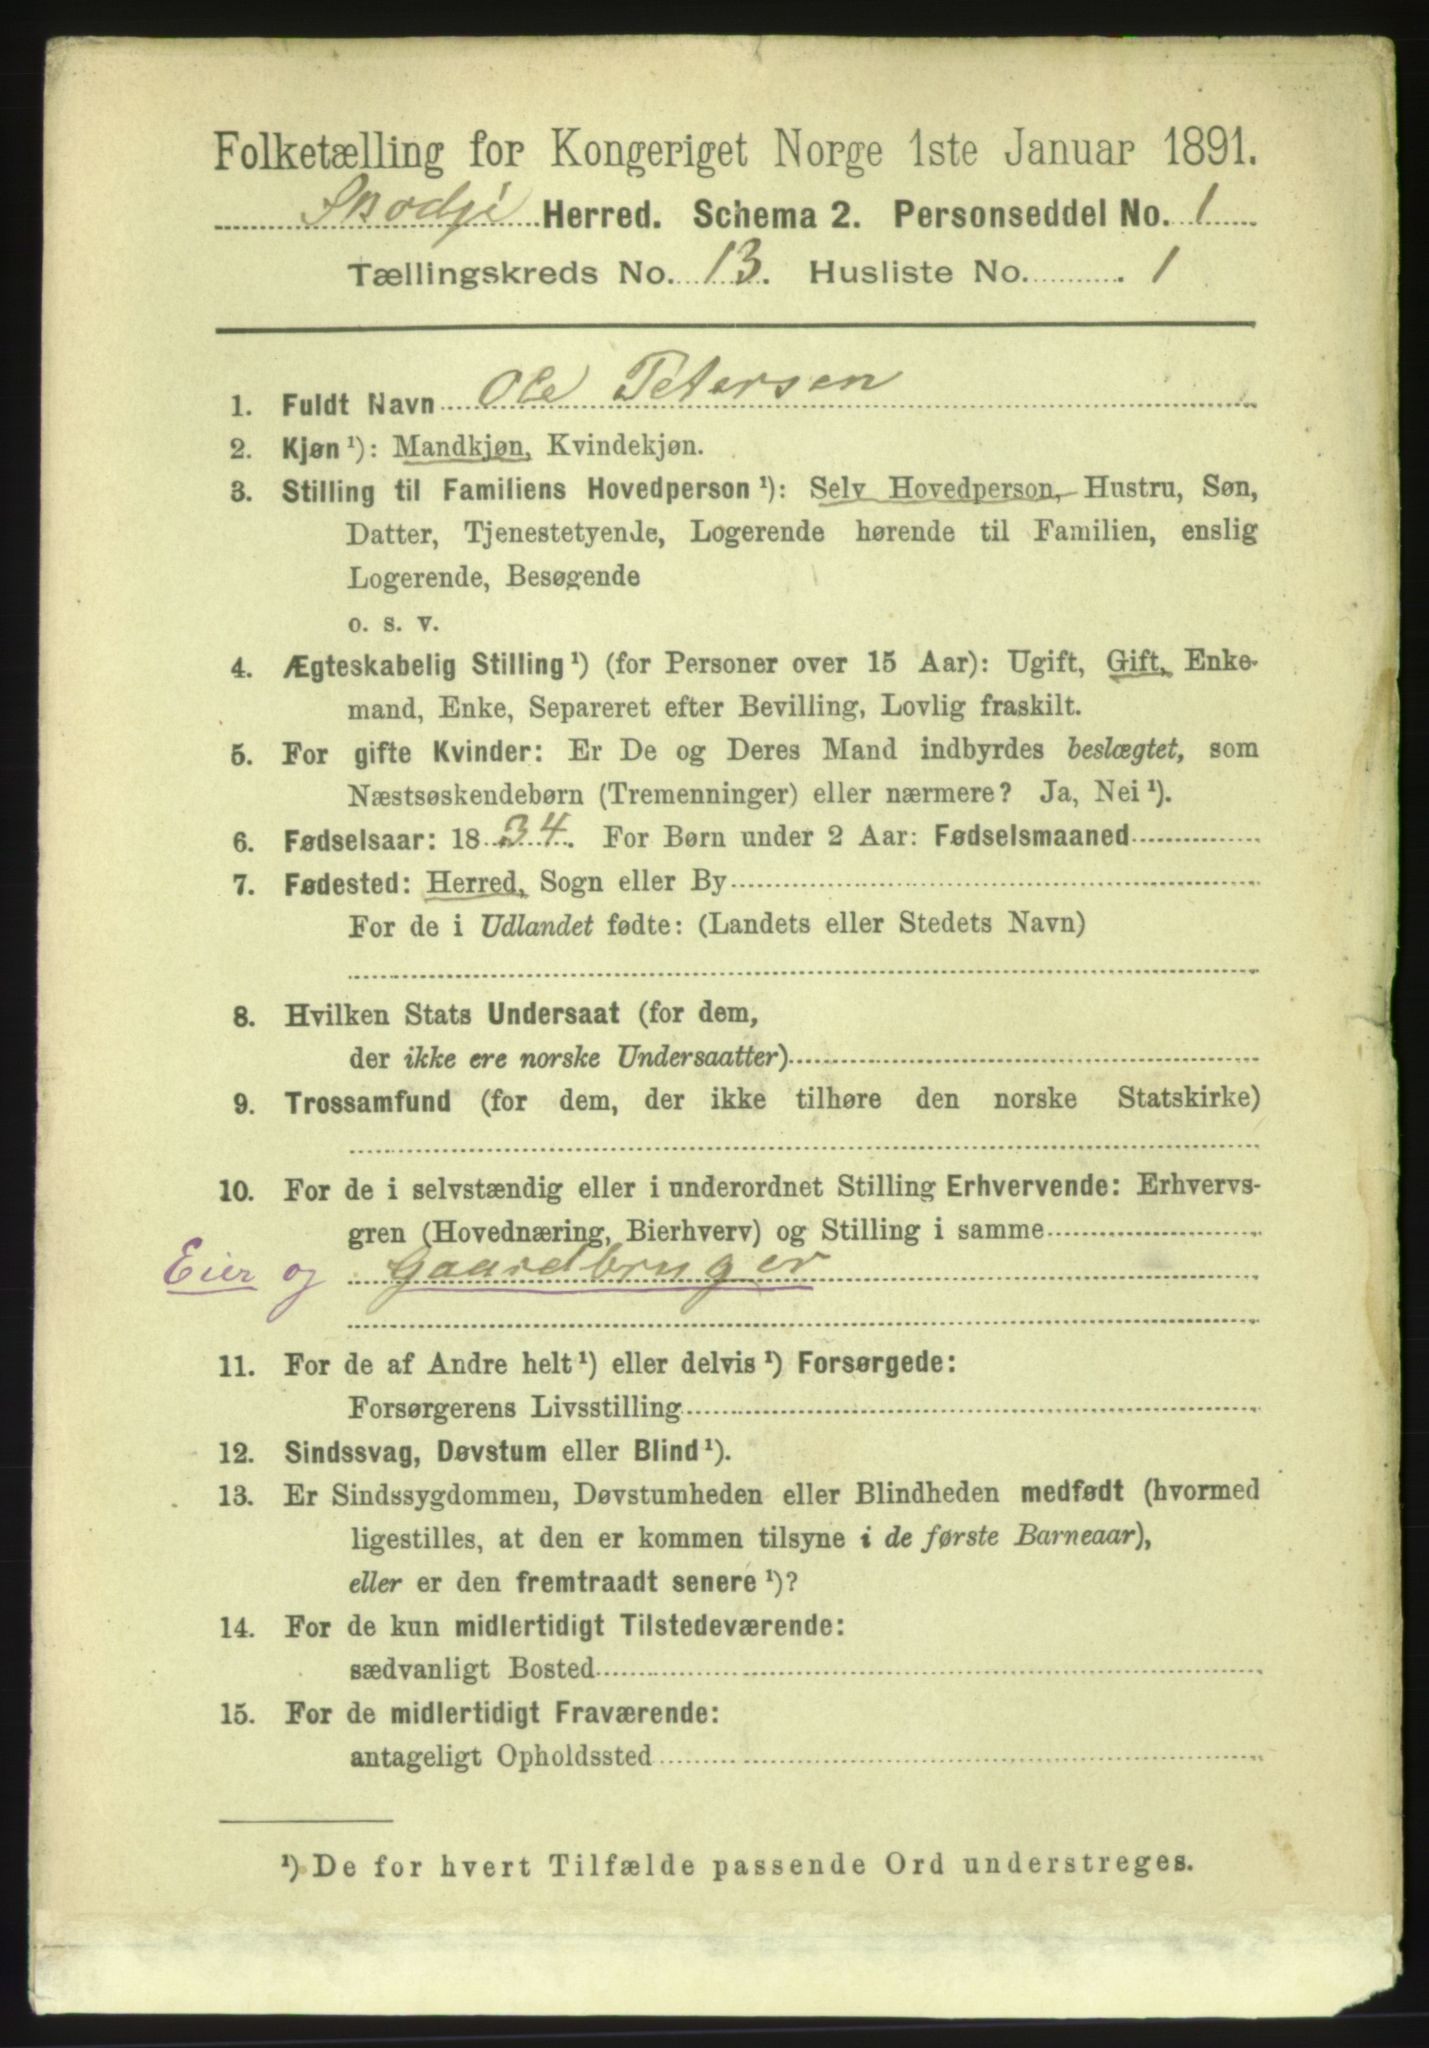 Folketælling for Kongeriget Norge 1ste Januar 1891.
Skodje Herred. Schema 2. Personseddel No. 1
Tællingskreds No. 13. Husliste No. 1
1. Fuldt Navn Ole Petersen
2. Kjøn ¹): Mandkjøn, Kvindekjøn.
3. Stilling til Familiens Hovedperson ¹): Selv Hovedperson, Hustru, Søn,
Datter, Tjenestetyende, Logerende hørende til Familien, enslig
Logerende, Besøgende
o. s. v.
4. Ægteskabelig Stilling ¹) (for Personer over 15 Aar): Ugift, Gift, Enke-
mand, Enke, Separeret efter Bevilling, Lovlig fraskilt.
5. For gifte Kvinder: Er De og Deres Mand indbyrdes beslægtet, som
Næstsøskendebørn (Tremenninger) eller nærmere? Ja, Nei ¹).
6. Fødselsaar: 1834. For Børn under 2 Aar: Fødselsmaaned
7. Fødested: Herred, Sogn eller By
For de i Udlandet fødte: (Landets eller Stedets Navn)
8. Hvilken Stats Undersaat (for dem,
der ikke ere norske Undersaatter)
9. Trossamfund (for dem, der ikke tilhøre den norske Statskirke)
10. For de i selvstændig eller i underordnet Stilling Erhvervende: Erhvervs-
gren (Hovednæring, Bierhverv) og Stilling i samme
Eier og Gaardbruger
11. For de af Andre helt ¹) eller delvis ¹) Forsørgede:
Forsørgerens Livsstilling
12. Sindssvag, Døvstum eller Blind ¹).
13. Er Sindssygdommen, Døvstumheden eller Blindheden medfødt (hvormed
ligestilles, at den er kommen tilsyne i de første Barneaar),
eller er den fremtraadt senere ¹)?
14. For de kun midlertidigt Tilstedeværende:
sædvanligt Bosted
15. For de midlertidigt Fraværende:
antageligt Opholdssted
¹) De for hvert Tilfælde passende Ord understreges.